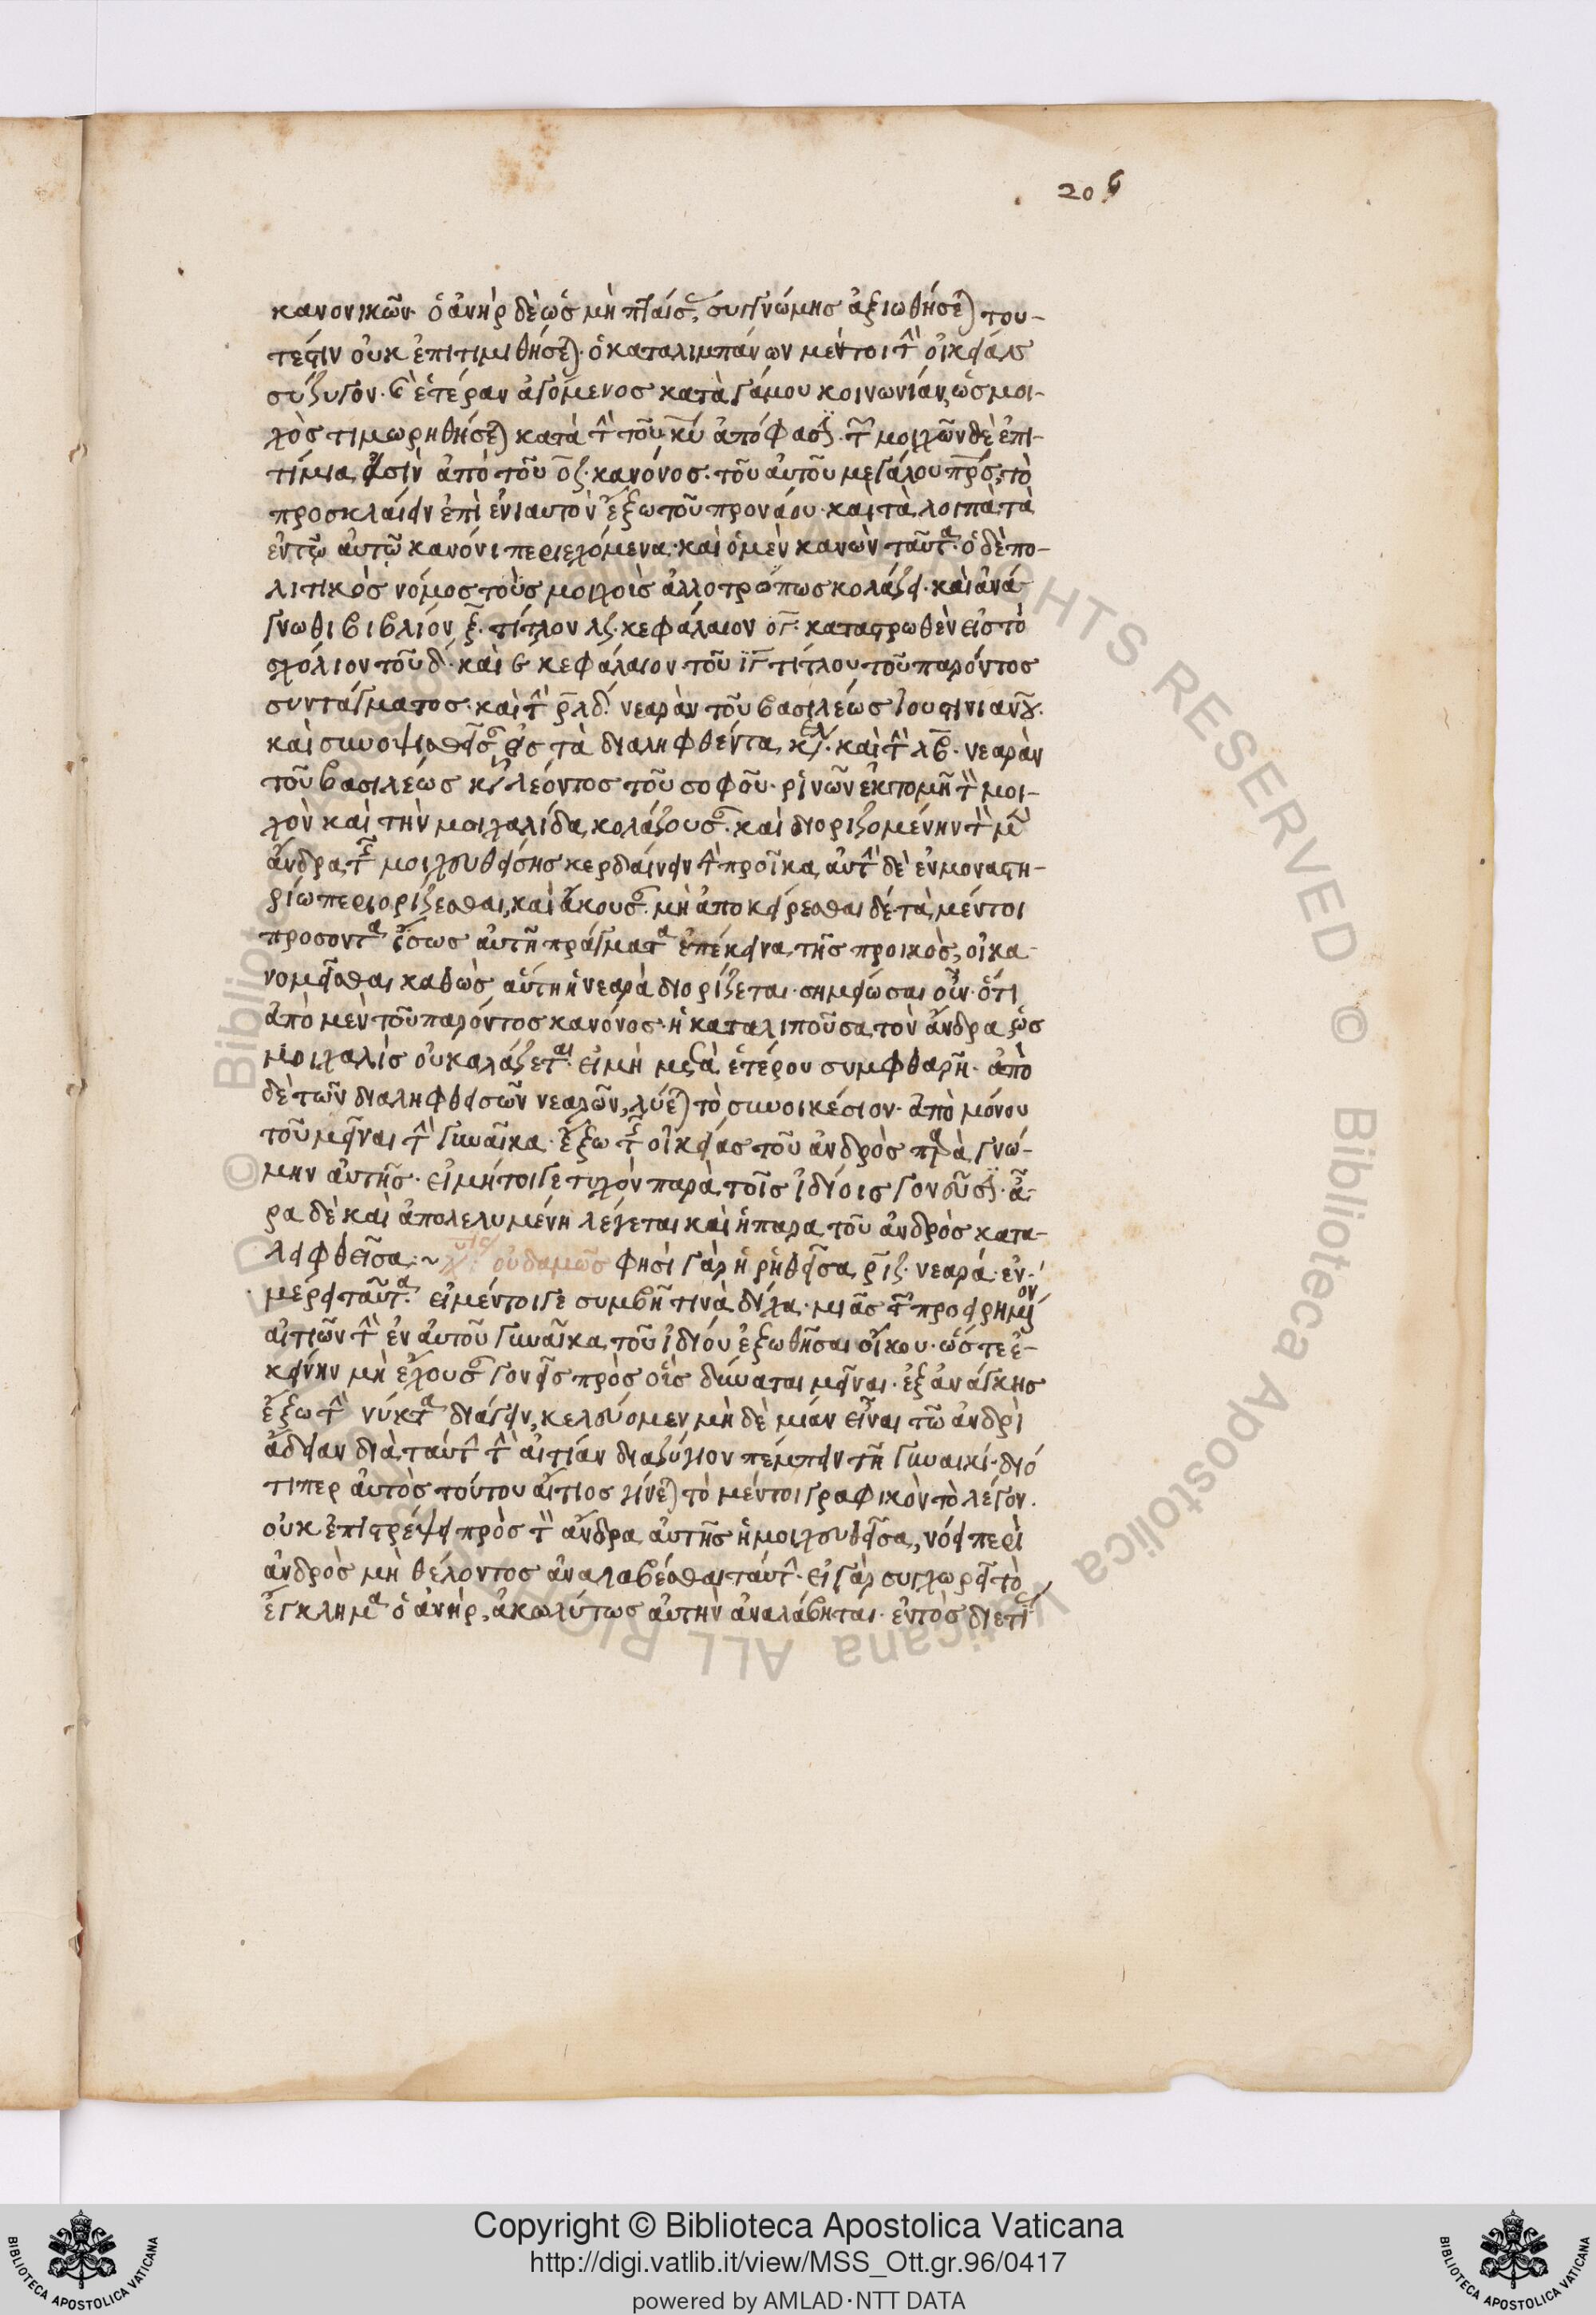 206
κανονικῶν· ὁ ἀνὴρ δὲ ὡς μὴ πταίσας, συγγνώμης ἀξιωθήσεται) του-
τέστιν οὐκ ἐπιτιμηθήσεται)· ὁ καταλιμπάνων μέντοι τὴν οἰκείαν
σύζυγον· καὶ ἑτέραν ἀγόμενος κατὰ γάμου κοινωνίαν, ὡς μοι-
χὸς τιμωρηθήσεται) κατὰ τὴν τοῦ κυ ἀπόφασιν· τῶν μοιχῶν δὲ ἐπι-
τίμια, εἰσὶν ἀπὸ τοῦ οζ· κανόνος· τοῦ αὐτοῦ μεγάλου πρς, τὸ
προσκλαίειν ἐπὶ ἐνιαυτὸν ἔξω τοῦ προνάου· καὶ τὰ λοιπὰ τὰ
ἐν τῷ αὐτῷ κανόνι περιεχόμενα· καὶ ὁ μὲν κανὼν ταῦτα· ὁ δὲ πο-
λιτικὸς νόμος τοὺς μοιχοὺς ἀλλοτρόπως κολάζει· καὶ ἀνά-
γνωθι βιβλίον ξ· τίτλον λζ· κεφάλαιον ογ· καταστρωθὲν εἰς τὸ
σχόλιον τοῦ δ· καὶ ϛ κεφάλαιον τοῦ ιγ τίτλου τοῦ παρόντος
συντάγματος· καὶ τὴν ρλδ· νεαρὰν τοῦ βασιλέως Ἰουστινιανοῦ·
καὶ συνοψισθεῖσαν εἰς τὰ διαληφθέντα, κεφάλ· καὶ τὴν λβ· νεαρὰν
τοῦ βασιλέως κυ λέοντος τοῦ σοφοῦ· ῥινῶν ἐκτομῇ τὸν μοι-
χὸν καὶ τὴν μοιχαλίδα, κολάζουσαν· καὶ διοριζομένην τὸν μὲν
ἄνδρα, τῆς μοιχευθείσης κερδαίνειν τὴν προῖκα, αὐτὴν δὲ ἐν μοναστη-
ρίω περιορίζεσθαι, καὶ ἄκουσαν· μὴ ἀποκείρεσθαι δέ· τὰ μέντοι
προσοντα ἴσως αὐτῇ πράγματα ἐπέκεινα, τῆς προικὸς, οἰκο-
νομεῖσθαι καθὼς αὕτη ἡ νεαρὰ διορίζεται· σημείωσαι οὖν· ὅτι
ἀπὸ μὲν τοῦ παρόντος κανόνος· ἡ καταλιποῦσα, τὸν ἄνδρα ὡς
μοιχαλὶς οὐ κολάζεται· εἰ μὴ μετὰ ἑτέρου συμφθαρῇ· ἀπὸ
δὲ τῶν διαληφθεισῶν νεαρῶν, λύεται) τὸ συνοικέσιον· ἀπὸ μόνου
τοῦ μεῖναι τὴν γυναῖκα· ἔξω τῆς οἰκείας τοῦ ἀνδρὸς παρὰ γνώ-
μην αὐτῆς· εἰ μήτοιγε τυχὸν παρὰ τοῖς ἰδίοις γονεῦσιν· ἆ-
ρα δὲ καὶ ἀπολελυμένη λέγεται καὶ ἡ παρα τοῦ ἀνδρὸς κατα-
λειφθεῖσα:~ οὐδαμῶς φησὶ γὰρ ἡ ῥηθεῖσα, ριζ· νεαρά· ἐν
μέρει ταῦτα· εἰ μέντοιγε συμβῇ τινὰ δίχα· μιᾶς τῶν προειρημένων
αἰτιῶν τὴν ἐν αὐτοῦ γυναῖκα, τοῦ ἰδίου ἐξωθῆσαι οἴκου· ὥστε ἐ-
κείνην μὴ ἔχουσαν γονεῖς πρὸς οἷς δύναται μεῖναι· ἐξ ἀνάγκης
ἔξω τὴν νύκτα διάγειν, κελεύομεν μὴ δὲ μίαν εἶναι τῶ ἀνδρὶ
ἄδειαν διὰ ταύτην τὴν αἰτίαν διαζύγιον πέμπειν τῇ γυναικί· διό
τιπερ αὐτὸς τούτου αἴτιος γίνεται) τὸ μέντοι γραφικὸν τὸ λέγον·
οὐκ ἐπιστρέψει πρὸς τὸν ἄνδρα αὐτῆς ἡ μοιχευθεῖσα, νόει περὶ
ἀνδρὸς μὴ θέλοντος ἀναλαβέσθαι ταύτην· εἰ γὰρ συγχωρεῖ τὸ
ἔγκλημα ὁ ἀνὴρ, ἀκωλύτως αὐτὴν ἀναλάβηται· ἐντὸς διετίας
© Biblioteca Apostolica Vaticana ALL RIGHTS RESERVED
Copyright © Biblioteca Apostolica Vaticana
http://digi.vatlib.it/view/MSS_Ott.gr.96/0417
powered by AMLAD·NTT DATA
BIBLIOTECA APOSTOLICA VATICANA
BIBLIOTECA APOSTOLICA VATICANA